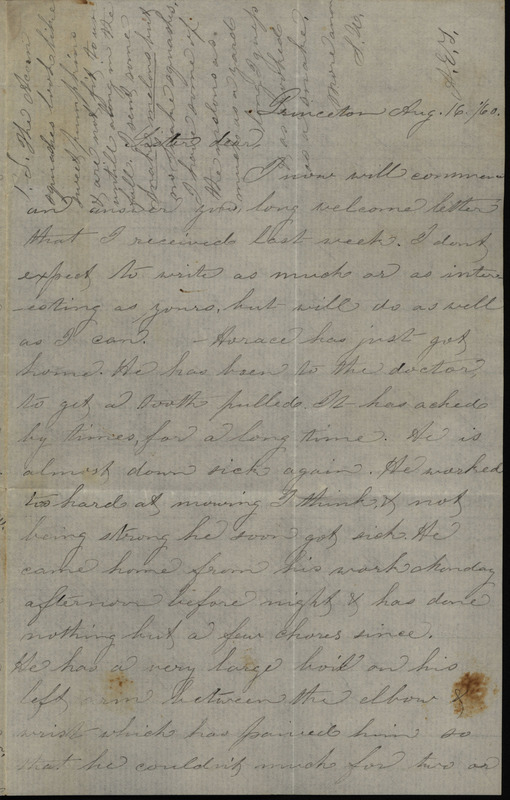 Princeton Aug. 16. /60.
Sister dear,
I now will commence
an answer your long welcome letter
that I received last week. I dont
expect to write as much or as inter
-esting as yours, but will do as well
as I can. Horace has just got
home. He has been to the doctor,
to get a tooth pulled. It has ached
by times, for a long time. He is
almost down sick again. He worked
too hard at mowing I think, & not
being strong he soon got sick. He
came home from his work Monday
afternoon before night & has done
nothing but a few chores since.
He has a very large boil on his
left arm between the elbow &
wrist which has pained him so
that he couldn't much for two or
P.S. The
squashes look like
sweet pumpkins
& are not fit to use
until along in the
fall. I sent some
melons but
squashes,
I have some of
the melons as
much as a yard
long
snakes.
S.E.S.